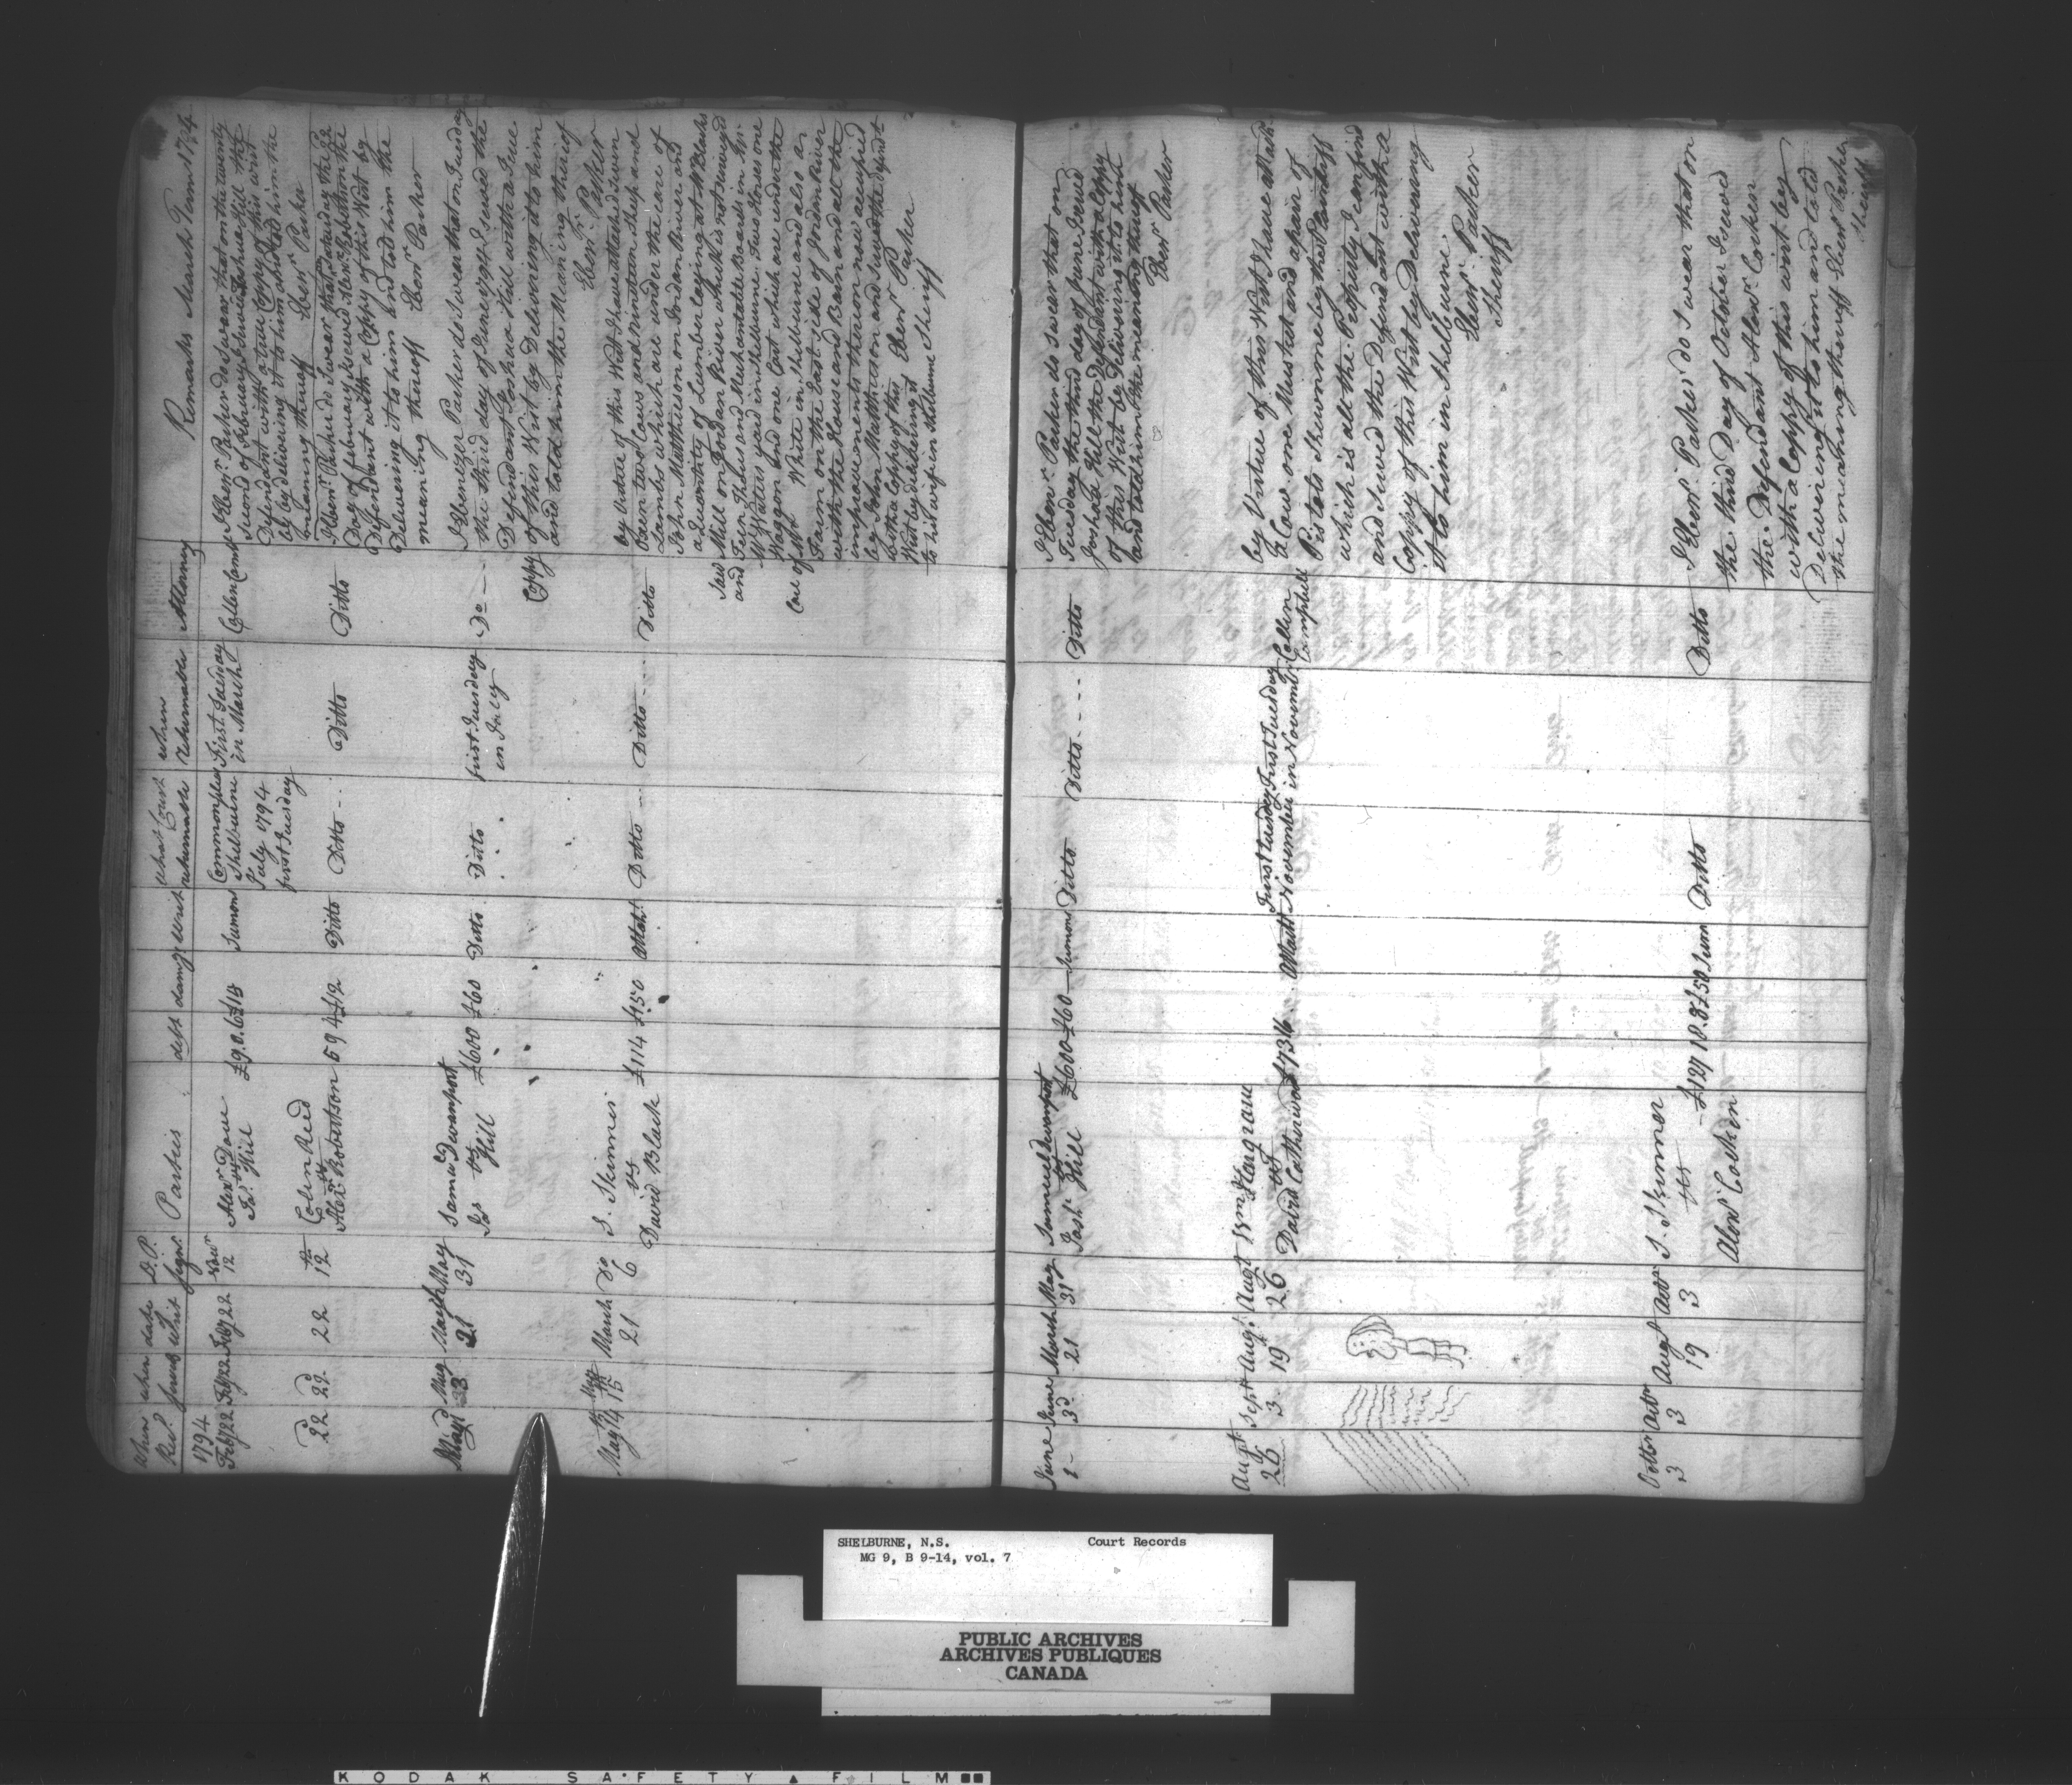 When Recd
when served
date Writ
D.P. signr.
Parties
debt
damage
writ
what Court returnable
when returnable
Attorny
Remarks March Term 1794
1794
Feby 22
Feby 22
Feby 22
12
Alexr
vs
Js. Hill
£9.0.6
Sumons
Commonpleas
Shelburne
July 1794
first Tuesday
First Tuesday
in March
Collen Camble
I Ebenr. Parker do Swear that on the twenty
Second of february I served Joshua Hill the
Defendant with a true Coppy of this writ
by deliviring it to him and told him the
meaning thereoff Ebenr Parker
22d
22d
22
12
Colin Reed
vs
Alexr. Robertson
59 4
£12
Ditto
Ditto
Ditto
Ditto
I Ebenr. Parker do Swear that Saturday the 22
Day of february I served Alexr. Robertson the
Defendant with a Coppy of this Writ by
Delivering it to him and told him the
meaning thereoff Ebenr Parker
May
March
21
May
31
Samel Devanport
vs
Jos Hill
£600
£60
Ditto
Ditto
first Tuesday
in July
Do
I Ebenezer Parker do Swear that on Tuesday
the third day of June 1794 I served the
Defendant Joshua Hill with a True
Coppy of this Writ by Delivering it to him
and told him the Meaning thereof
Ebenr. Parker
May 14
May 15
March
21
Do
6
S. Skinner
vs
David Black
£114
£150
Attacht.
Ditto
Ditto
Ditto
by Virtue of this Writ I have attached Seven
Oxen two Cows and Nineteen Sheep and
Lambs which are under the care of
John Matthieson on Jordan River and
a Quantity of Lumber laying at Mr Blacks
Saw Mill on Jordan River which is not surveyed
and
Waters yard in Shelburne. Two Horses one
Waggon and one Cart which are under the
Care of Mr White in Shelburne and also a
Farm on the East side of Jordan River
with the House and Barn and all the
improvements thereon now accupied
by John Matthieson and served the defendt
with a Coppy of this
Writ by delivering it
to his wife in Shelburne
Ebenr Parker
Sheriff
June
1
June
3d
March
21
May
31
Samuel Devanport
vs
Josh Hill
£600
£60
Sumons
Ditto
Ditto
Ditto
I Ebenr. Parker do swear that on
Tuesday the third day of June I served
Joshua Hill the Defendant with a Coppy
of this Writ by Delivering it to him
and told him the meaning thereof
Ebenr Parker
Augt.
26
Sept
3
Augt.
19
Augt
26
Wm Hargrave
vs
David Catherwood
£7 3 6
Attatt
First Tuesday
November
First Tuesday
in November
Collen
Campbell
by Virtue of this Writ I have attach
a Cow one Musket and a pair of
Pistols shewn me by the Plaintiff
which is all the Property I can find
and served the Defendant with a
Coppy of this Writ by Delivering
it to him in Shelburne.
Ebenr. Parker
Sheriff
Octor
3
Octr
3
Augt
19
Octr
3
S. Skinner
vs
Alexr Cocken
£127 18. 8
£50
Sum
Ditto
Ditto
I Ebenr. Parker do Swear that on
the third Day of October I served
the Defendant Alexr. Cocken
with a Coppy of this writ by
Delivering it to him and told
the meaning thereoff Ebenr Parker
Sheriff
SHELBURNE, N.S. Court Records
MG 9, B 9-14, vol. 7
PUBLIC ARCHIVES
ARCHIVES PUBLIQUES
CANADA
KODAK SAFETY FILM